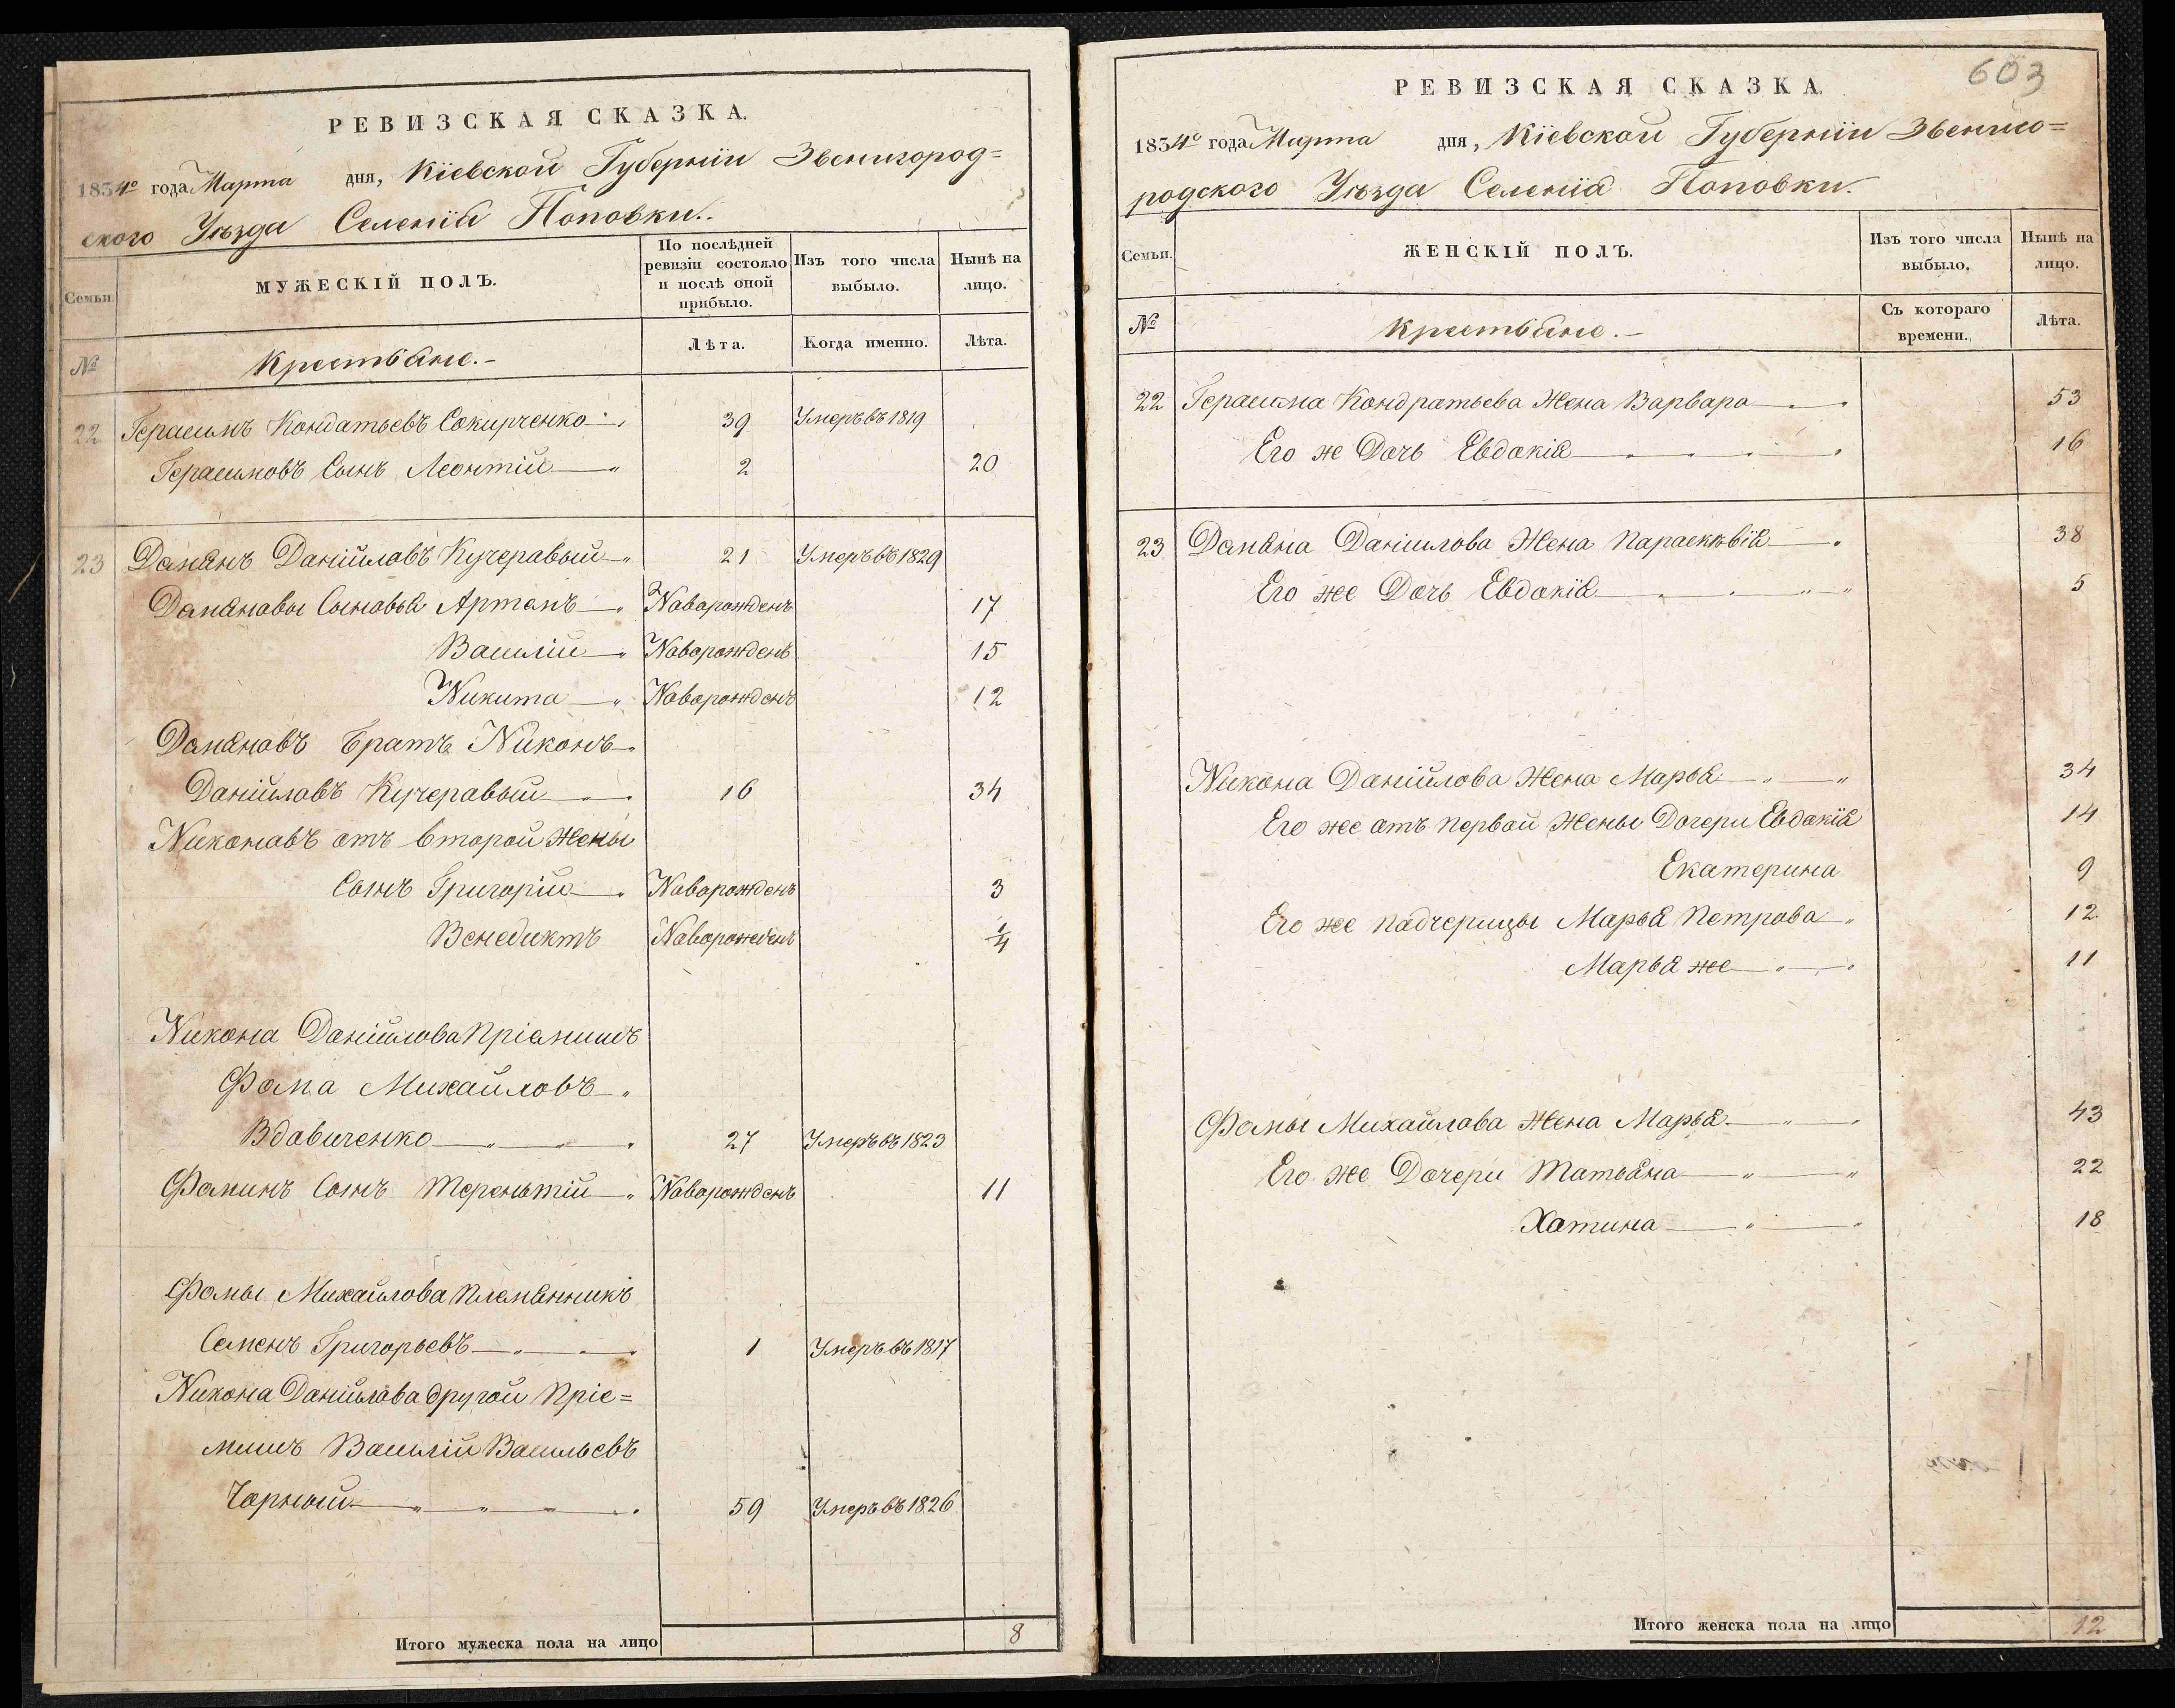 РЕВИЗСКАЯ СКАЗКА.
1834го года Марта дня, Кіевской Губерніи Звенигород=
ского Уѣзда Селенія Поповки.
Семьи
МУЖЕСКІЙ ПОЛЪ.
По послѣдней ревизіи состояло и послѣ оной прибыло.
Изъ того числа выбыло.
Нынѣ на лицо.
№
Крестьяне.
Лѣта.
Когда именно.
Лѣта.
22 Герасимъ Кондатьевъ Сокирченко 39 Умеръ въ 1819
Герасимовъ Сынъ Леонтій 2 20
23 Демянъ Даніиловъ Кучеравый 21 Умеръ въ 1829
Демяновы Сыновья Артемъ Новорожденъ 17
Василій Новорожденъ 15
Никита Новорожденъ 12
Демяновъ Братъ Никонъ
Даніиловъ Кучеравый 16 34
Никоновъ отъ второй Жены
Сынъ Григорій Новорожденъ 3
Венедиктъ Новорожденъ 1/4
Никона Даніилова Пріемышъ
Фома Михайловъ
Вдовиченко 27 Умеръ въ 1823
Фоминъ Сынъ Терентій Новорожденъ 11
Фомы Михайлова Племянникъ
Семенъ Григорьевъ 1 Умеръ въ 1817
Никона Даніилова другой Пріе=
мышъ Василій Васильевъ
Чорный 59 Умеръ въ 1826
Итого мужеска пола на лицо 8
603
РЕВИЗСКАЯ СКАЗКА.
1834го года Марта дня, Кіевской Губерніи Звениго=
родского Уѣзда Селенія Поповки.
Семьи.
ЖЕНСКІЙ ПОЛЪ.
Изъ того числа выбыло.
Нынѣ на лицо.
№
Крестьяне.
Съ котораго времени.
Лѣта.
22 Герасима Кондратьева Жена Варвара 53
Его же Дочь Евдокія 16
23 Демяна Даніилова Жена Параскѣвія 38
Его же Дочь Евдокія 5
Никона Даніилова Жена Марья 34
Его же отъ первой Жены Дочери Евдокія 14
Екатерина 9
Его же падчерицы Марья Петрова 12
Марья же 11
Фомы Михайлова Жена Марья 43
Его же Дочери Татьяна 22
Хотина 18
Итого женска пола на лицо 12